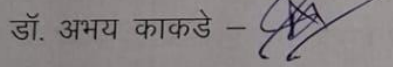 डॉ. अभय काकडे –